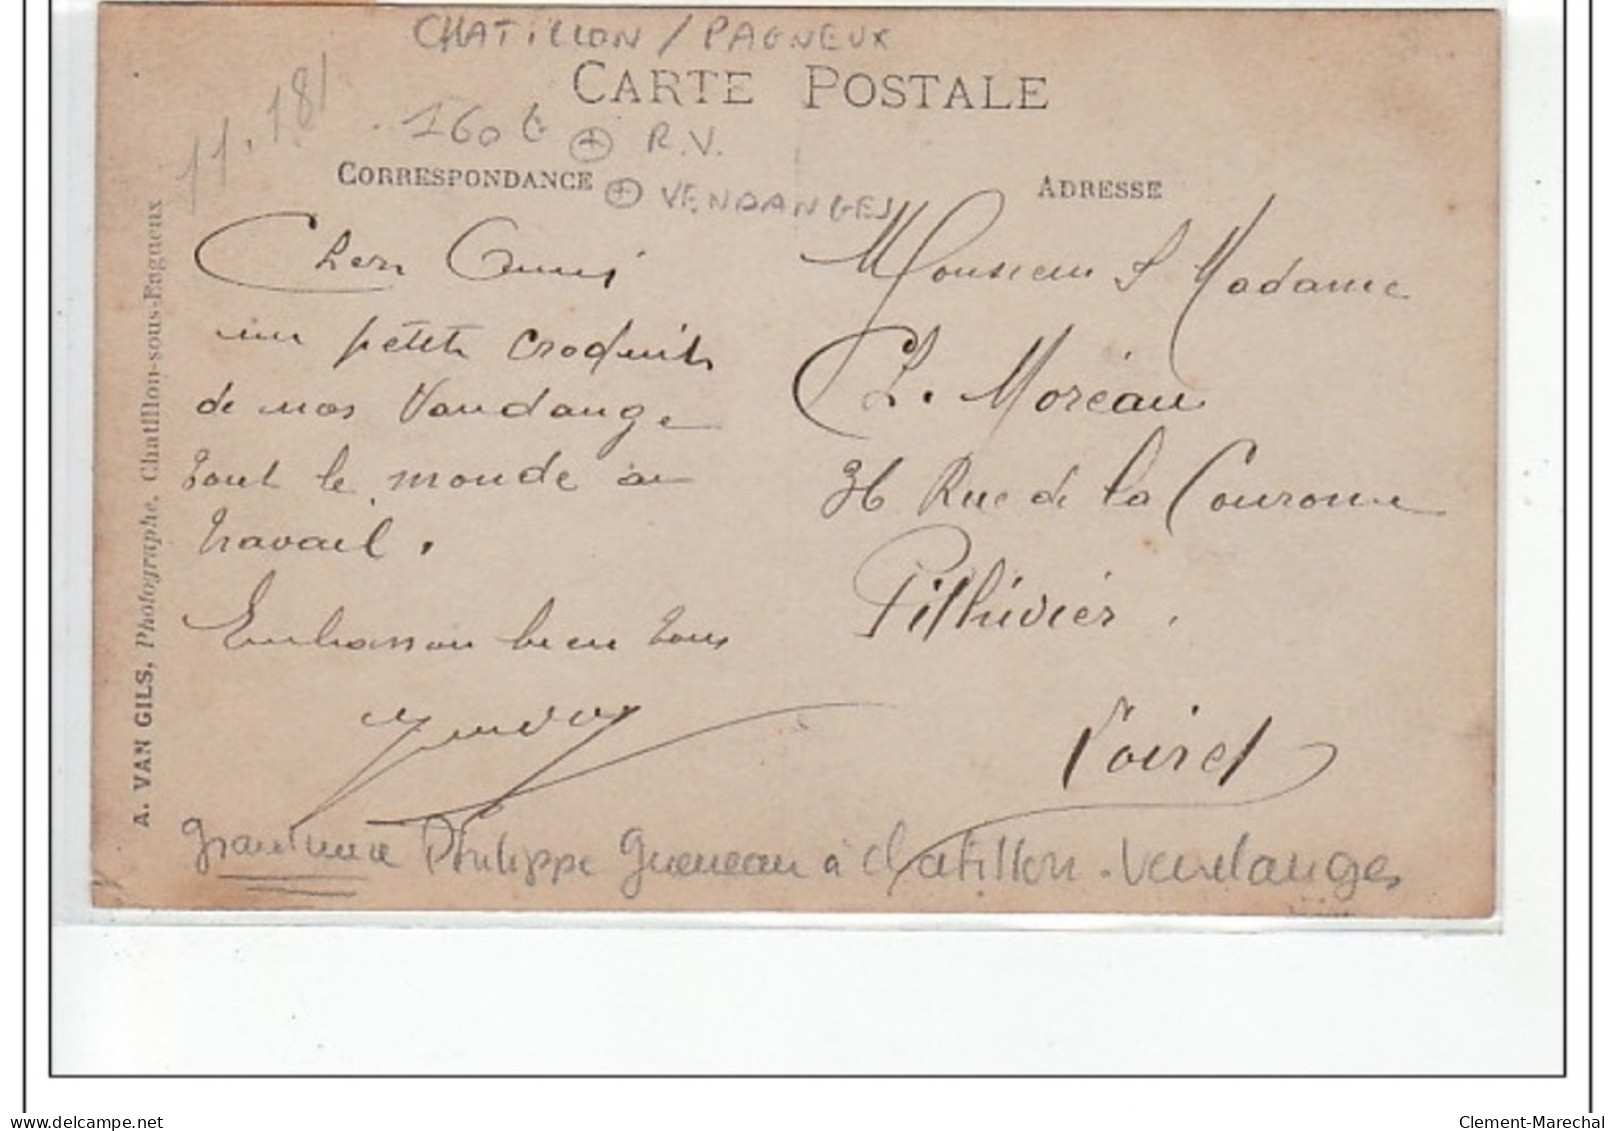 CHATILLON / PAGNEUX
CARTE POSTALE
11.181
160 € + R.V.
CORRESPONDANCE
+ VENDANGES
ADRESSE
Chers Amis
un petit croquit
de nos Vandange
tout le monde au
travail.
Embrasson bien tous
Monsieur & Madame
Ch. Moréau
36 Rue de la Couronne
Pithivier.
Loiret
A. VAN GILS, Photographe. Chatillon-sous-Bagneux
Philippe Gueneau à chatillon - Vendanges
Clement-Marechal